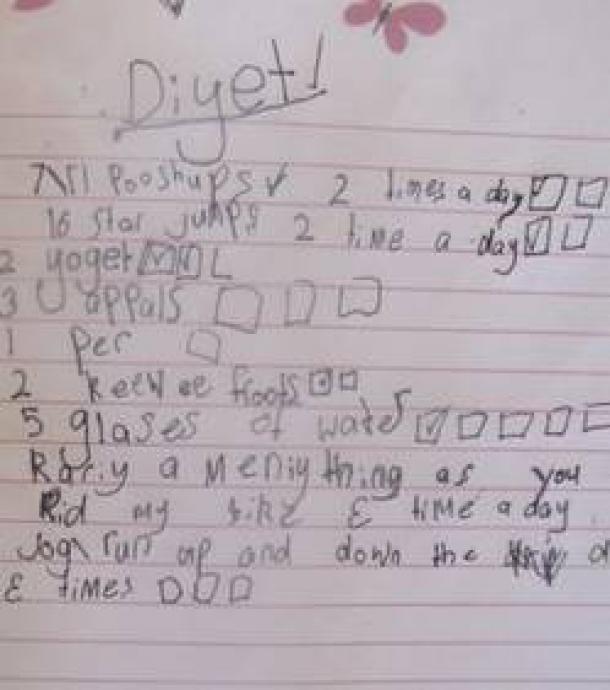 Diyet!
Pooshups ✓ 2 times a day
16 Star jumps 2 time a day
2 yoget
3 appals
1 per
2 keewee froots
5 glases of water
a meniy thing as you
Rid my bike 3 time a day
Jog run up and down the
3 times